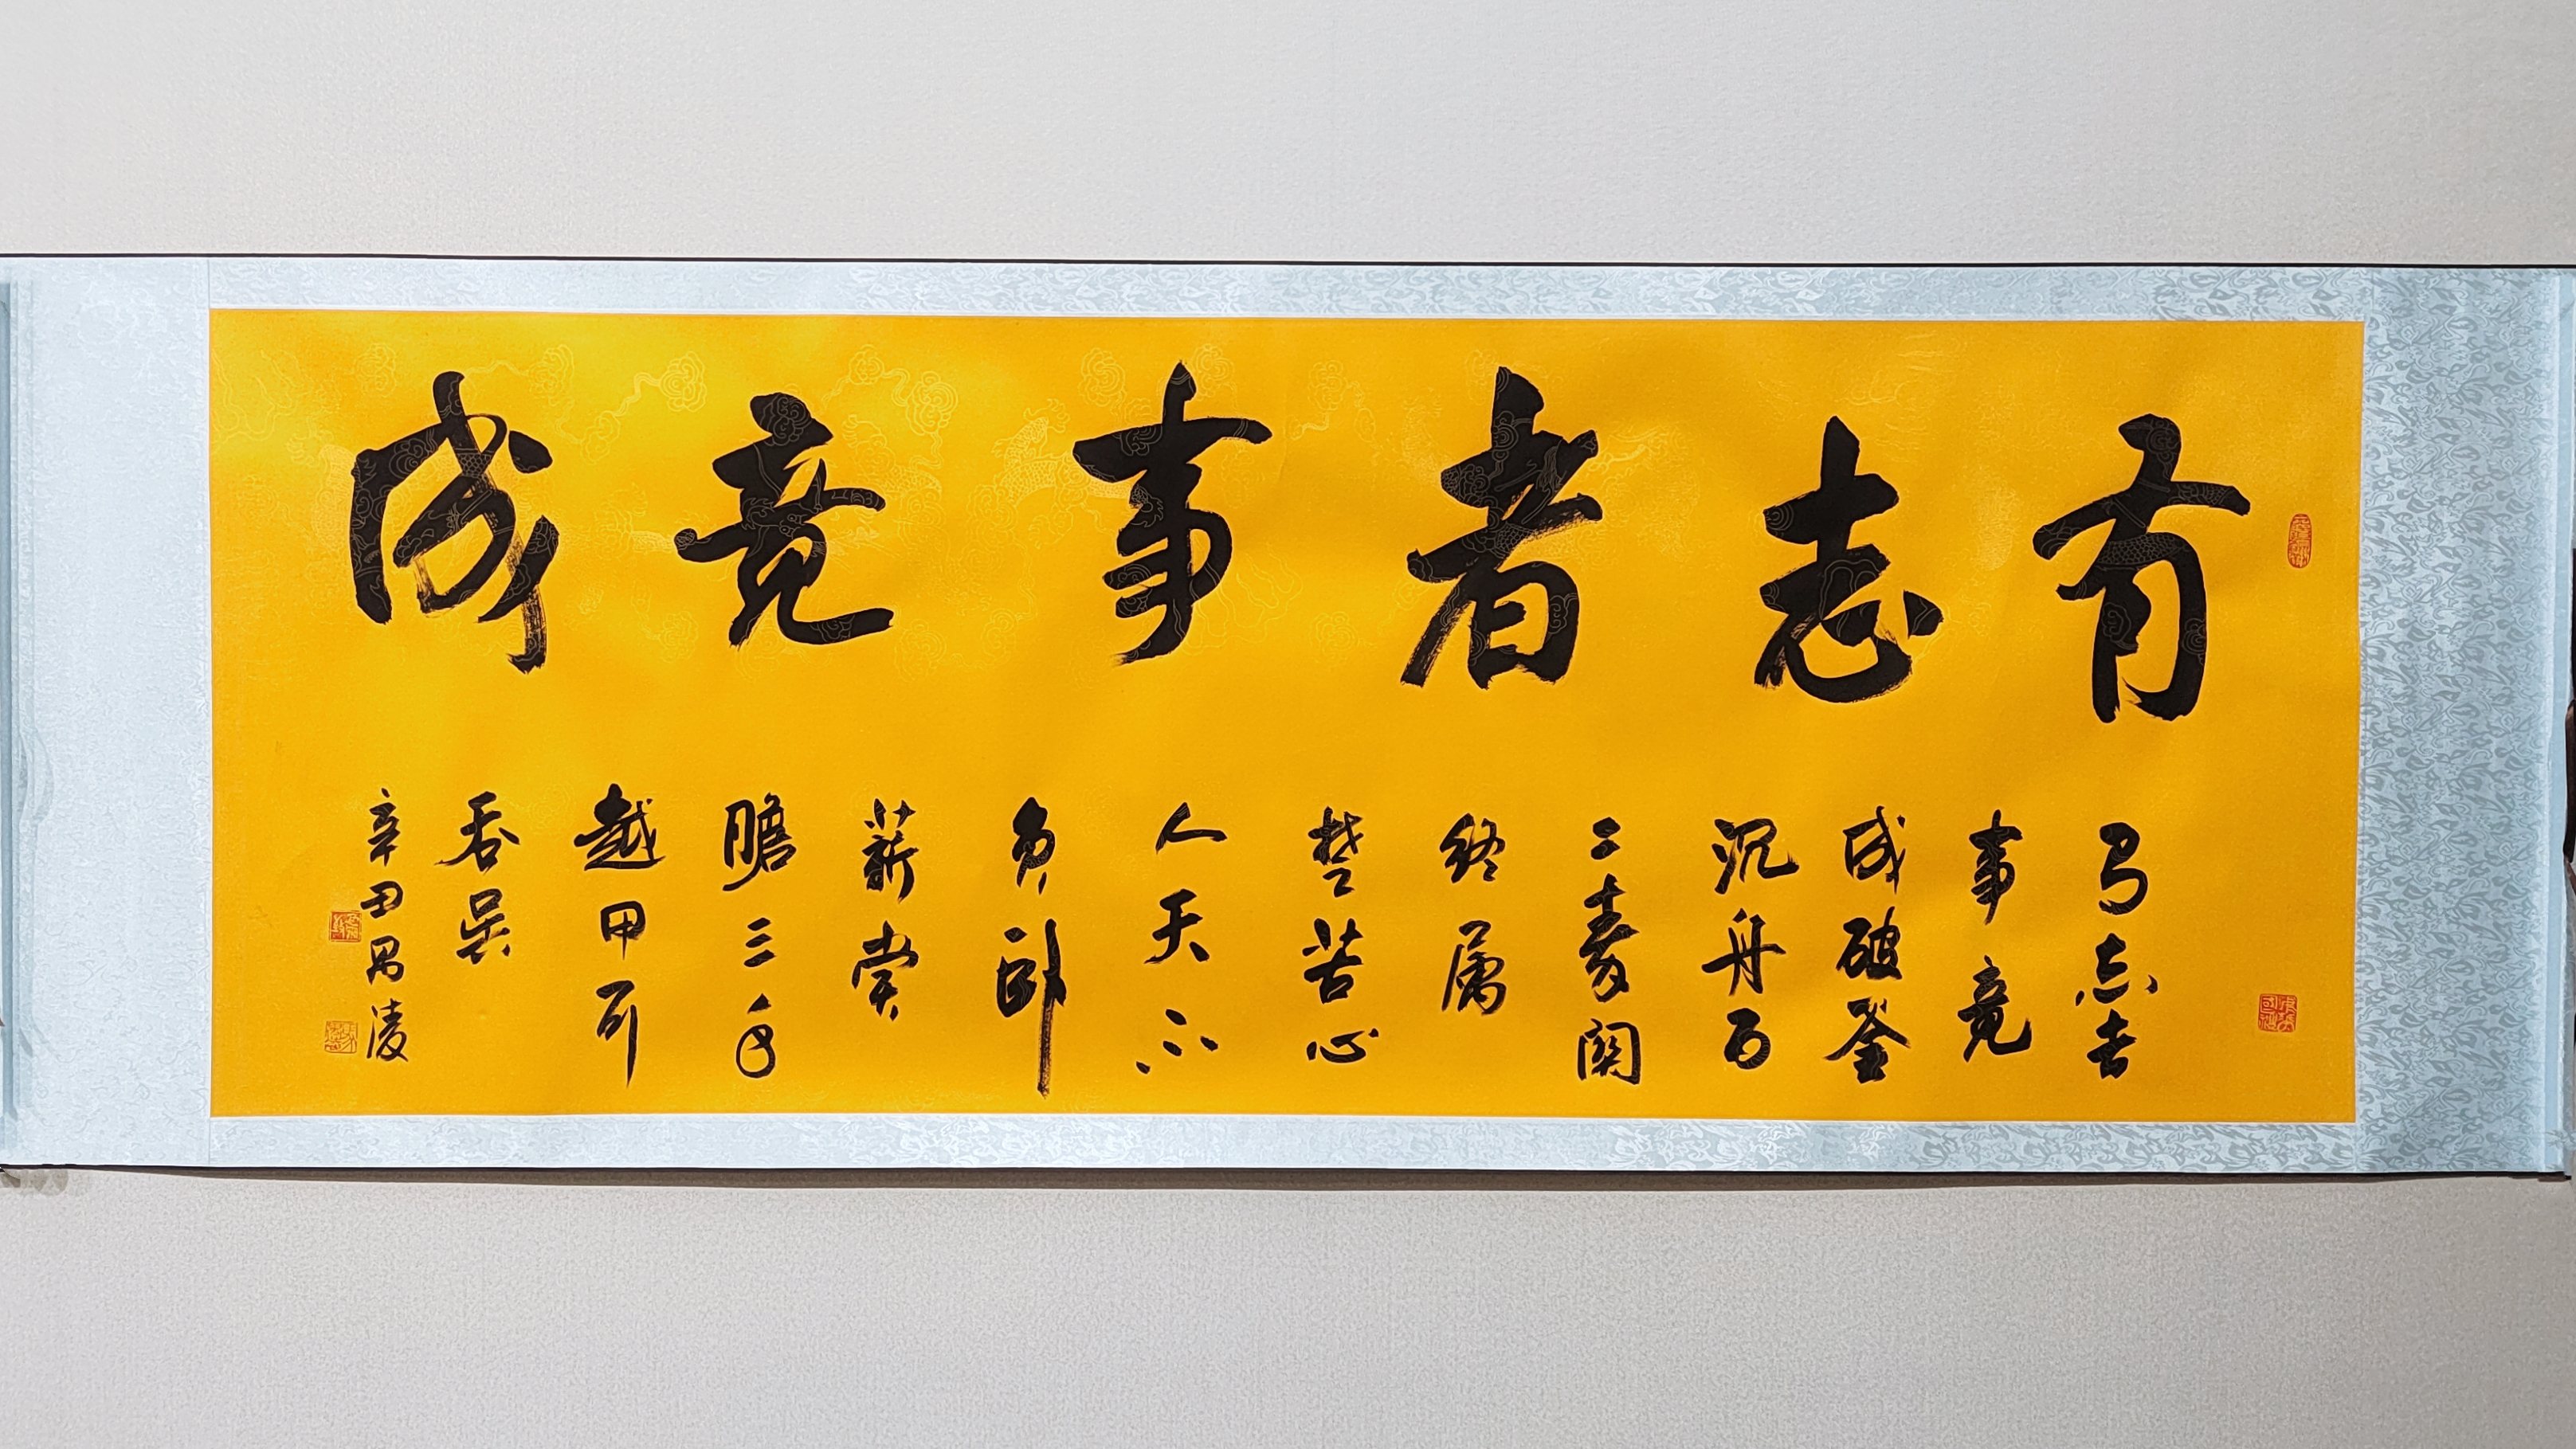 有志者事竟成
有志者
事竟
成破釜
沉舟百
二秦關
終属
楚苦心
人天不
負卧
薪嘗
膽三千
越甲可
吞吴
辛丑